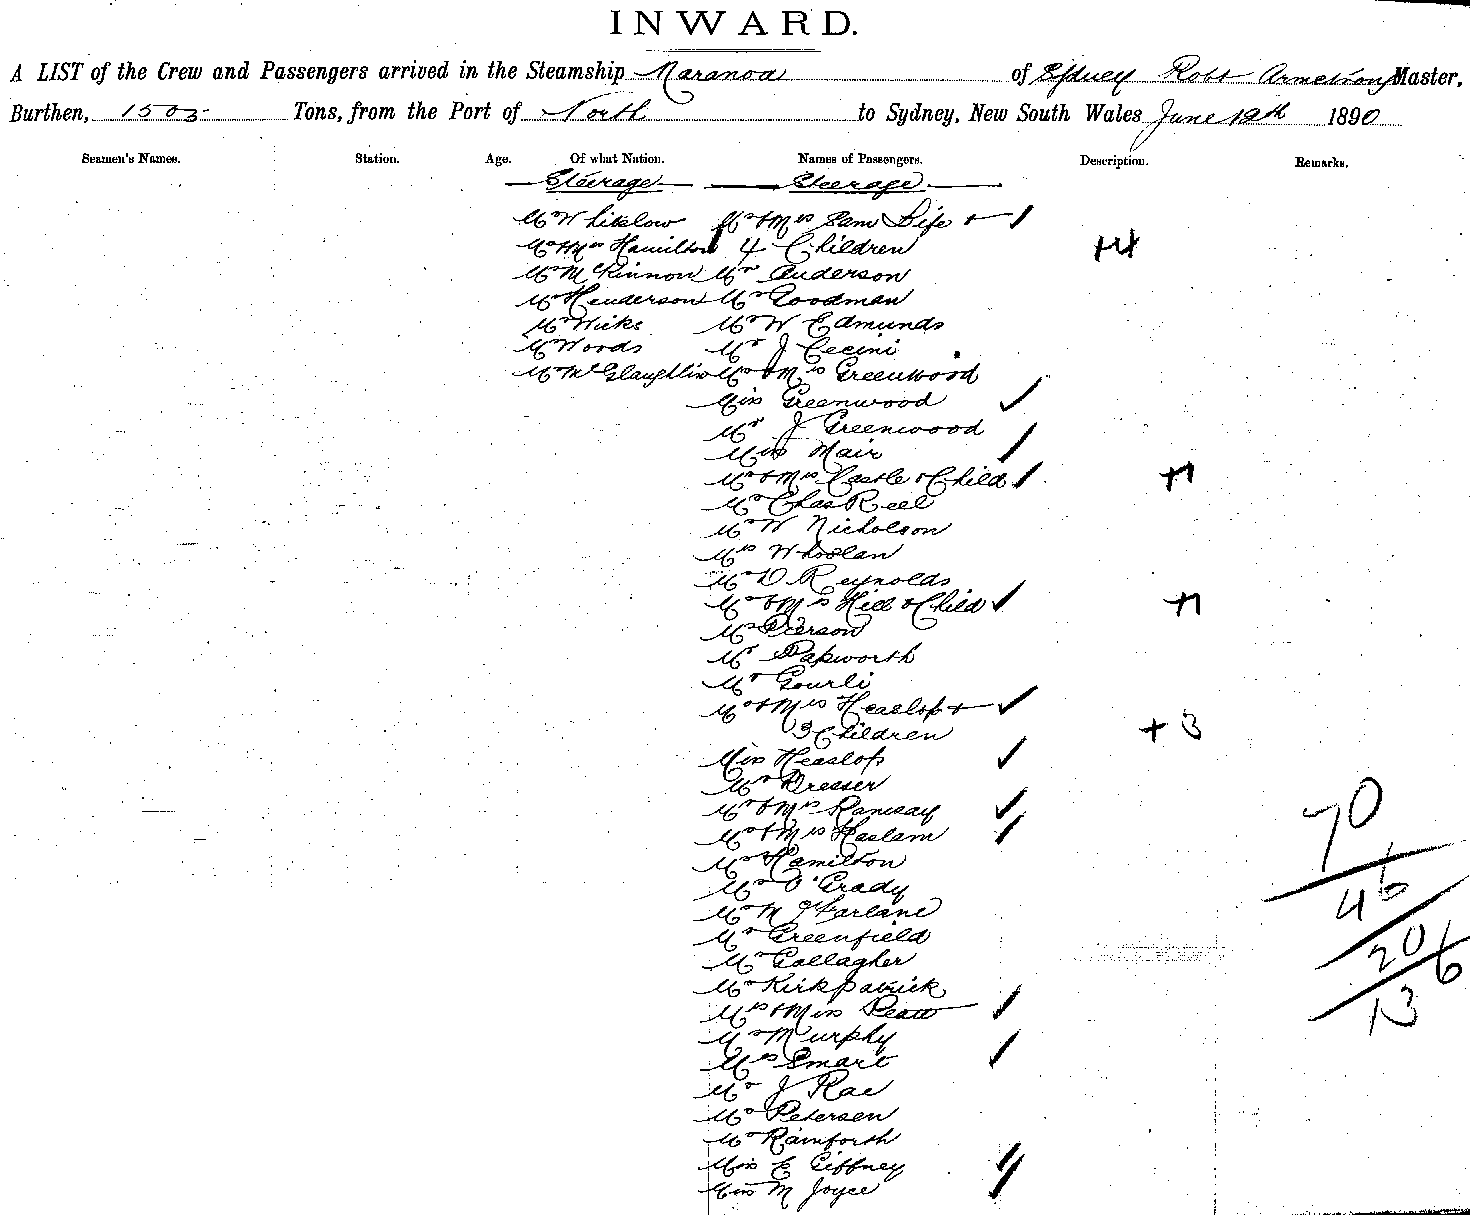 INWARD.
A LIST of the Crew and Passengers arrived in the Steamship Maranoa of Sydney Robt Armstrong Master,
Burthen, 1503 Tons, from the Port of North to Sydney, New South Wales June 12th 1890
Seamen's Names. Station. Age. Of what Nation. Names of Passengers. Description. Remarks.
Steerage Steerage
Mr Whitelow Mr & Mrs Sam Life +
Mr Mrs Hamilton 4 Children +4
Mr McKinnon Mr Anderson
Mr Henderson Mr Goodman
Mr Wicks Mr W Edmunds
Mr Woods Mr J Cecini
Mr McGlaughlin Mr & Mrs Greenwood
Miss Greenwood
Mr J Greenwood
Miss Mair
Mr & Mrs Castle & Child +1
Mr Chas Reel
Mr W Nicholson
Mrs Whoolan
Mr D Reynolds
Mr & Mrs Hill & Child +1
Mr Pierson
Mr Papworth
Mr Gourli
Mr & Mrs Heaslop +
3 Children +3
Miss Heaslop
Mr Dresser
Mr & Mrs Ramsay
Mr & Mrs Haslam
Mr Hamilton
Mr O'Grady
Mr McFarlane
Mr Greenfield
Mr Gallagher
Mr Kirkpatrick
Mrs & Miss Peatt
Mr Murphy
Mrs Smart
Mr J Rae
Mr Petersen
Mr Rainforth
Miss E Giffney
Miss M Joyce
70
46
206
13